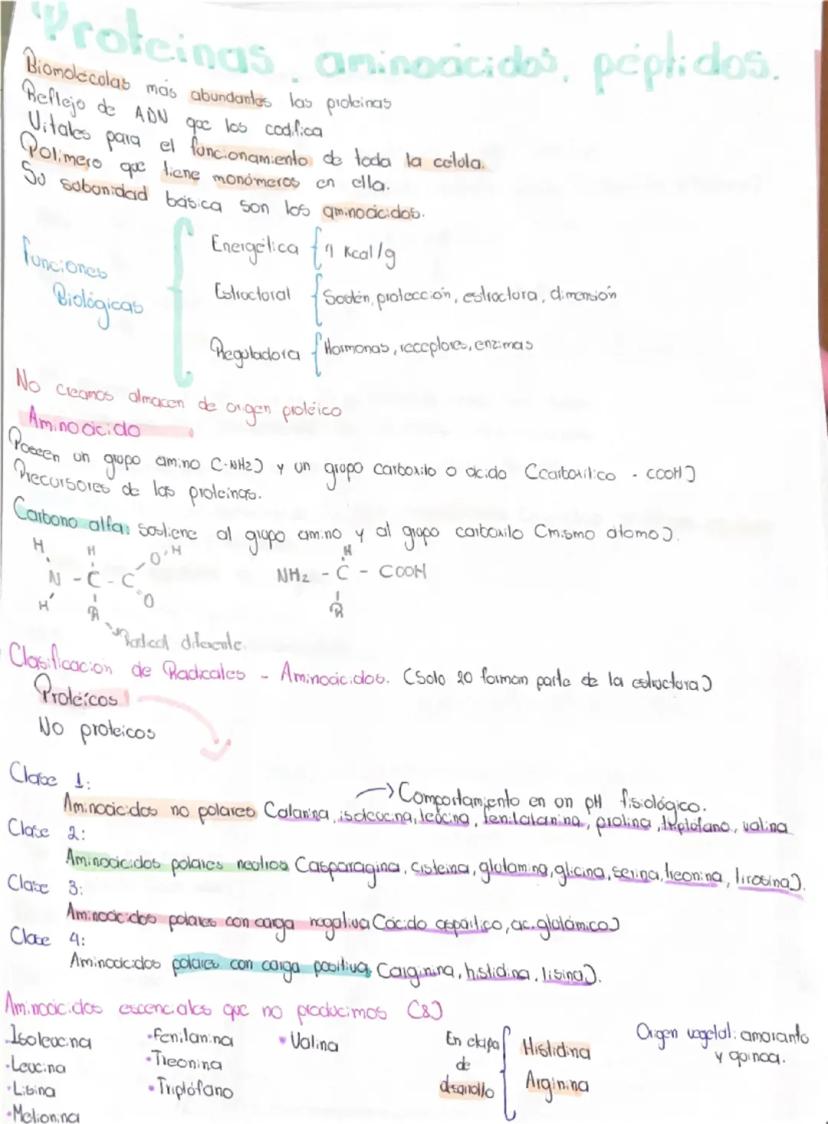 Proteínas, aminoácidos, péptidos.
Biomoléculas más abundantes las proteínas
Reflejo de ADN que los codifica
Vitales para el funcionamiento de toda la célula.
Polímero que tiene monómeros en ella.
Su subunidad básica son los aminoácidos.
Funciones Biológicas
Energética { 4 Kcal/g
Estructural { Sostén, protección, estructura, dimensión
Reguladora { Hormonas, receptores, enzimas
No creamos almacen de origen protéico
Aminoácido
Poseen un grupo amino (-NH2) y un grupo carboxilo o ácido (carboxilico - COOH)
Precursores de las proteínas.
Carbono alfa: sostiene al grupo amino y al grupo carboxilo (mismo átomo).
H H O-H H
N - C - C NH2 - C - COOH
H R O R
Radical diferente.
Clasificación de Radicales - Aminoácidos. (Solo 20 forman parte de la estructura)
Protéicos
No proteicos
Clase 1: → Comportamiento en un pH fisiológico.
Aminoácidos no polares (alanina, isoleucina, leucina, fenilalanina, prolina, triptofano, valina
Clase 2:
Aminoácidos polares neutros (asparagina, cisteina, glutamina, glicina, serina, treonina, tirosina).
Clase 3:
Aminoácidos polares con carga negativa (ácido aspártico, ac. glutámico)
Clase 4:
Aminoácidos polares con carga positiva (arginina, histidina, lisina).
Aminoácidos escenciales que no producimos (8)
·Isoleucina ·Fenilanina ·Valina En etapa de desarrollo { Histidina Arginina Origen vegetal: amaranto y quinoa.
·Leucina ·Treonina
·Lisina ·Triptófano
·Metionina